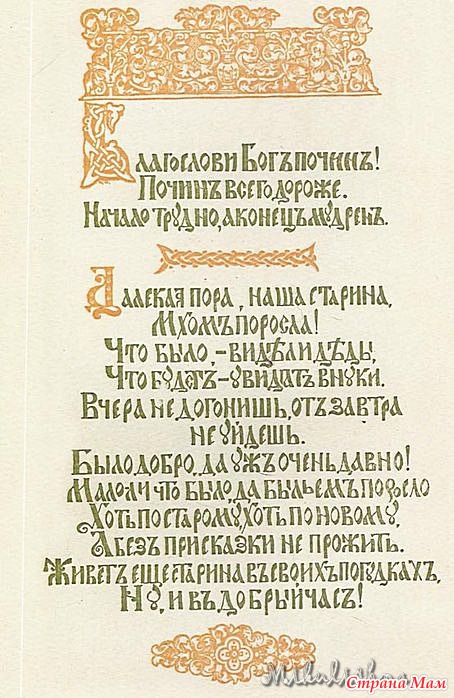 Благослови Богъ починъ!
Починъ всего дороже.
Начало трудно, а конецъ мудренъ.
Далекая пора, наша старина,
Мхомъ поросла!
Что было, – видѣли дѣды,
Что будетъ – увидятъ внуки.
Вчера не догонишь, отъ завтра
не уйдешь.
Было добро, да ужъ очень давно!
Мало ли что было, да быльемъ поросло
Хоть по старому, хоть по новому,
А безъ присказки не прожить.
Живетъ еще старина въ своихъ погудкахъ,
Ну, и въ добрый часъ!
Страна Мам